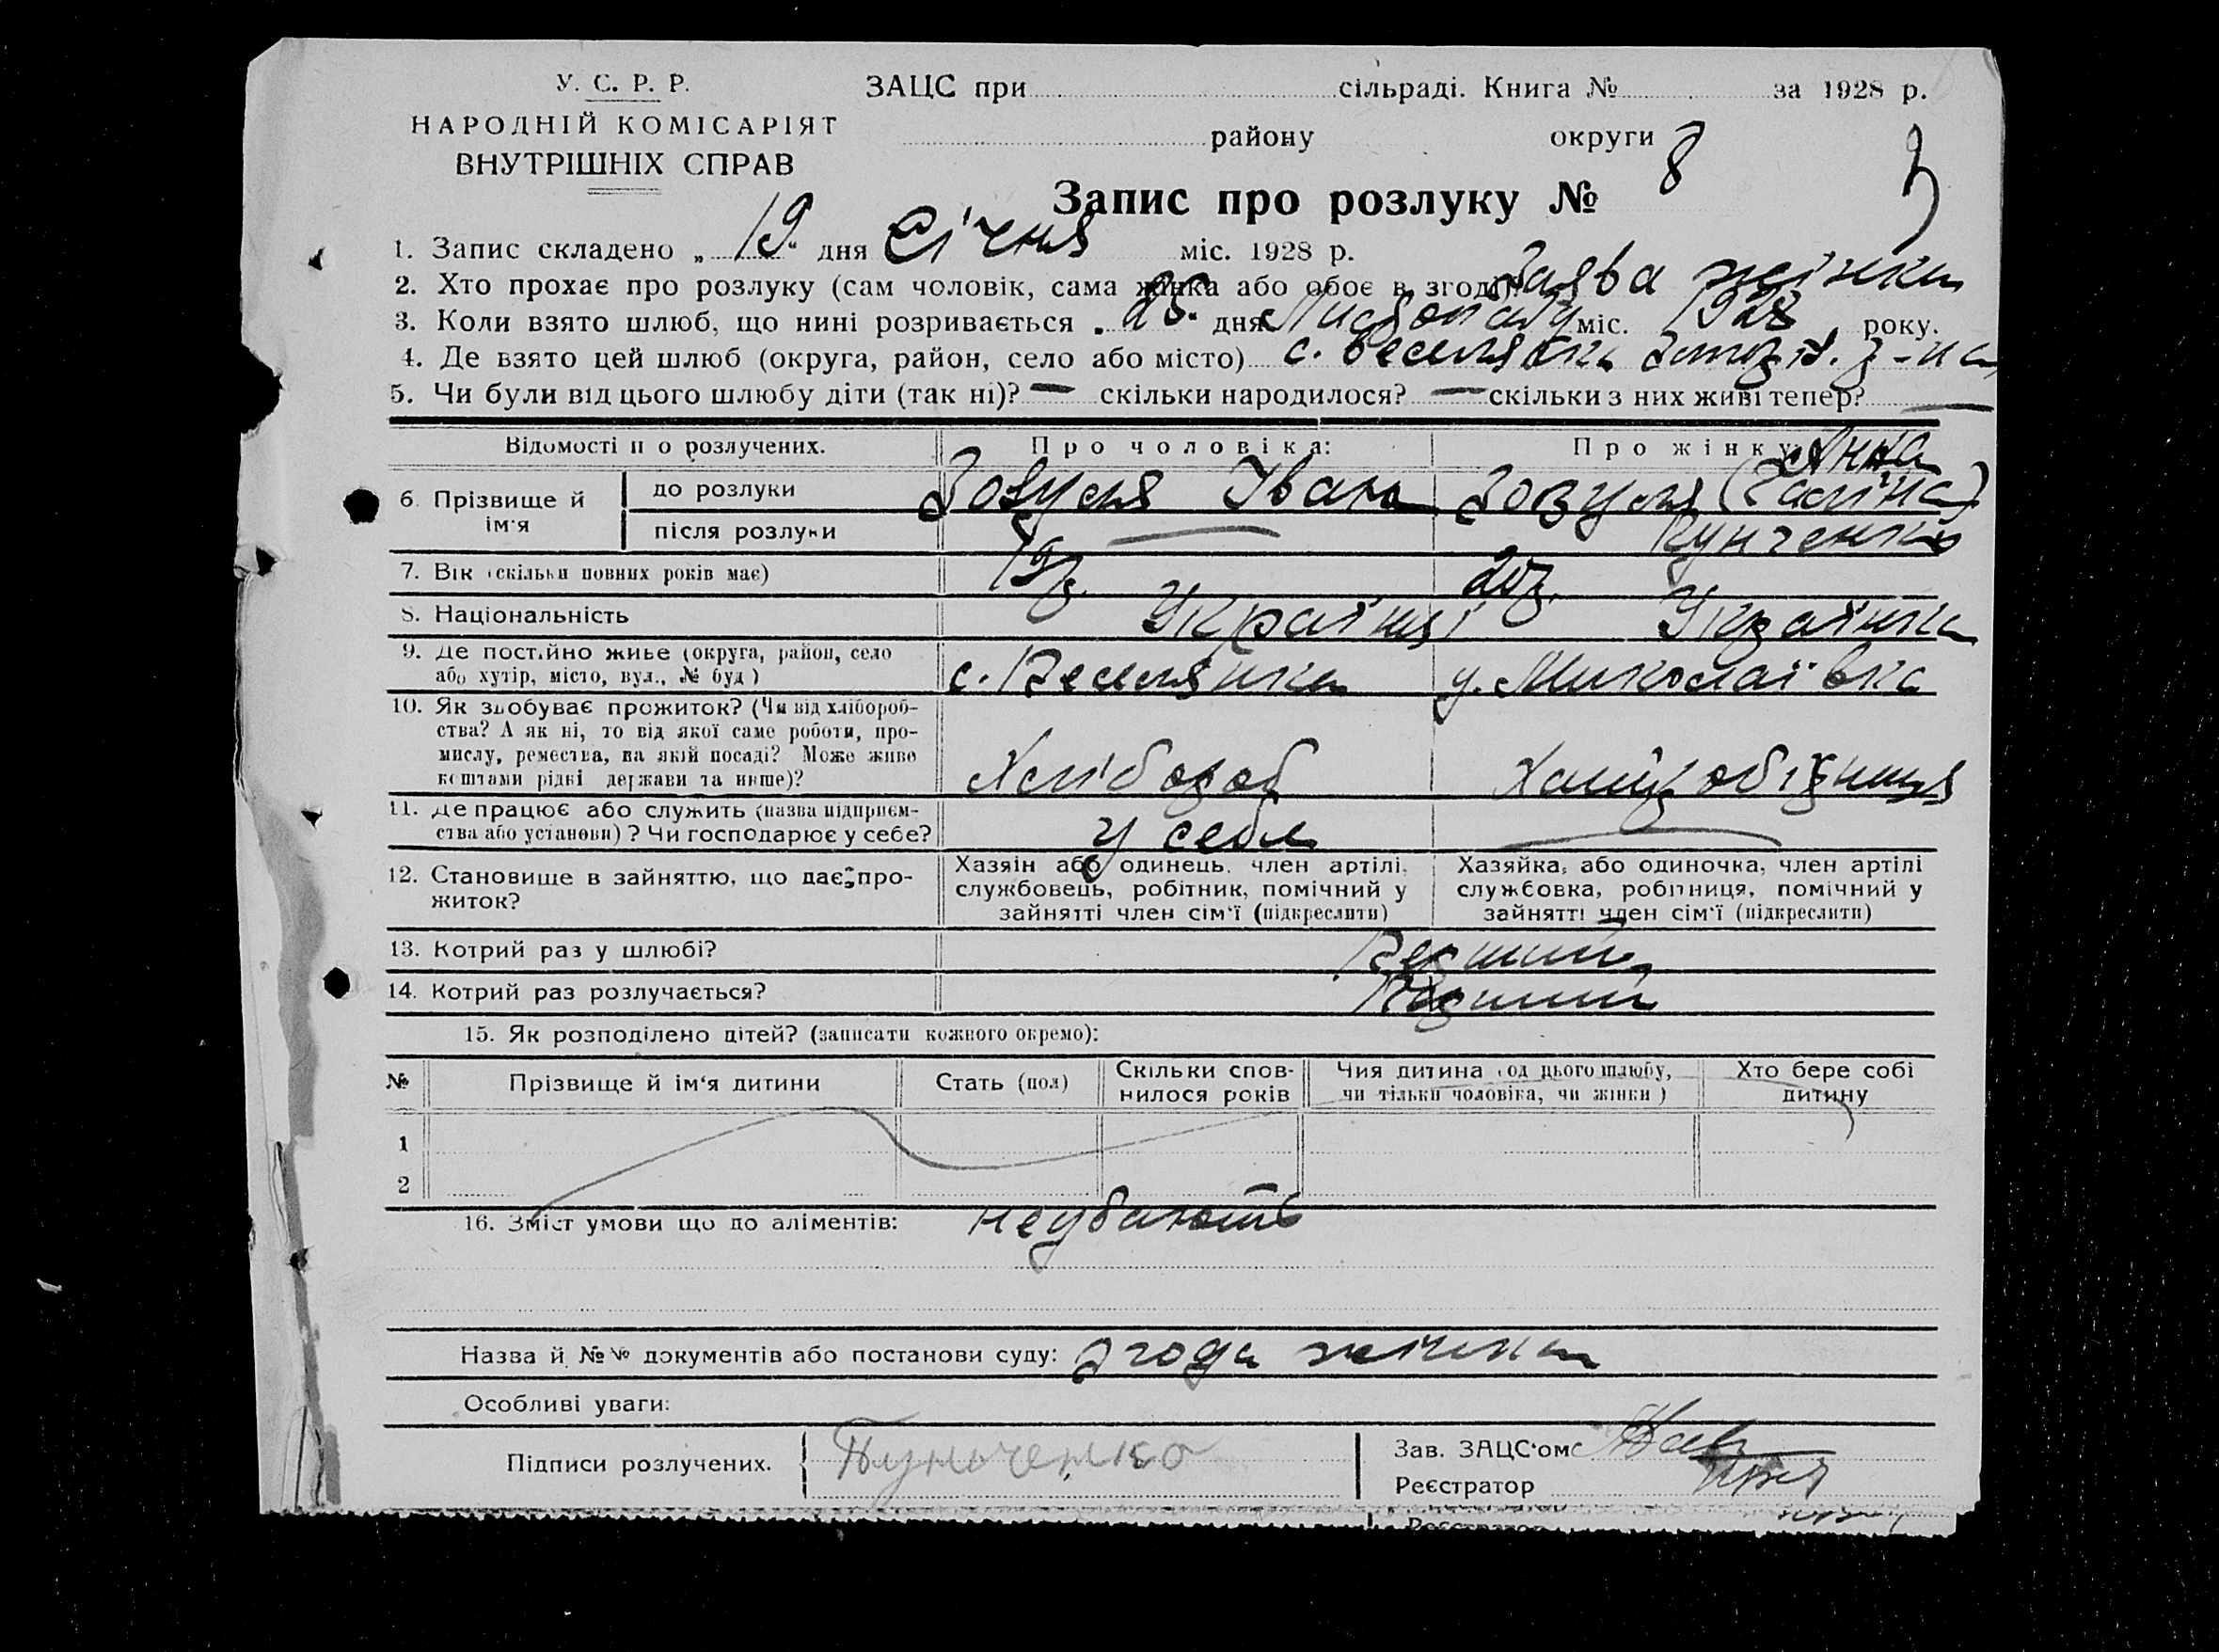 У. С. Р. Р.
НАРОДНІЙ КОМІСАРІЯТ
ВНУТРІШНІХ СПРАВ
ЗАЦС при сільраді. Книга № за 1928 р.
району округи
3
Запис про розлуку № 8
1. Запис складено „ 19 " дня Січня міс. 1928 р.
2. Хто прохає про розлуку (сам чоловік, сама жінка або обоє в згоді). Заява жінки
3. Коли взято шлюб, що нині розривається „ 25 " дня Листопаду міс. 1928 року.
4. Де взято цей шлюб (округа, район, село або місто) с. Веселянка р-на
5. Чи були від цього шлюбу діти (так ні)? — скільки народилося? — скільки з них живі тепер? —
Відомості п о розлучених. Про чоловіка: Про жінку:
6. Прізвище й ім'я
до розлуки Зозуля Іван Зозуля Анна (Галина)
після розлуки — Кунченко
7. Вік (скільки повних років має) 19 р. 20 р.
8. Національність Українці Українка
9. Де постійно живе (округа, район, село
або хутір, місто, вул., № буд) с. Веселянка у. Миколаївка
10. Як здобуває прожиток? (Чи від хлібороб-
ства? А як ні, то від якої саме роботи, про-
мислу, ремества, на якій посаді? Може живе
коштами рідні держави та инше)? Хлібороб
11. Де працює або служить (назва підприєм-
ства або установи)? Чи господарює у себе? у себе —
12. Становище в зайняттю, що дає про-
житок?
Хазяїн або одинець, член артілі,
службовець, робітник, помічний у
зайнятті член сім'ї (підкреслити)
Хазяйка, або одиночка, член артілі
службовка, робітниця, помічний у
зайнятті член сім'ї (підкреслити)
13. Котрий раз у шлюбі? Перший
14. Котрий раз розлучається? Перший
15. Як розподілено дітей? (записати кожного окремо):
№ Прізвище й ім'я дитини Стать (пол) Скільки спов-
нилося років Чия дитина (од цього шлюбу,
чи тільки чоловіка, чи жінки) Хто бере собі
дитину
1
2
16. Зміст умови що до аліментів:
Назва й №№ документів або постанови суду: згода жінки
Особливі уваги:
Підписи розлучених.
Зав. ЗАЦС'ом
Реєстратор